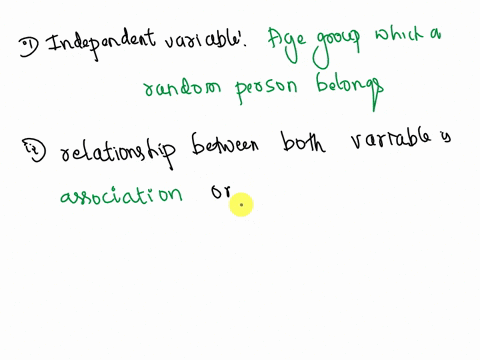 i) Independent variable: Age group which a
random person belongs
ii) relationship between both variable is
association or